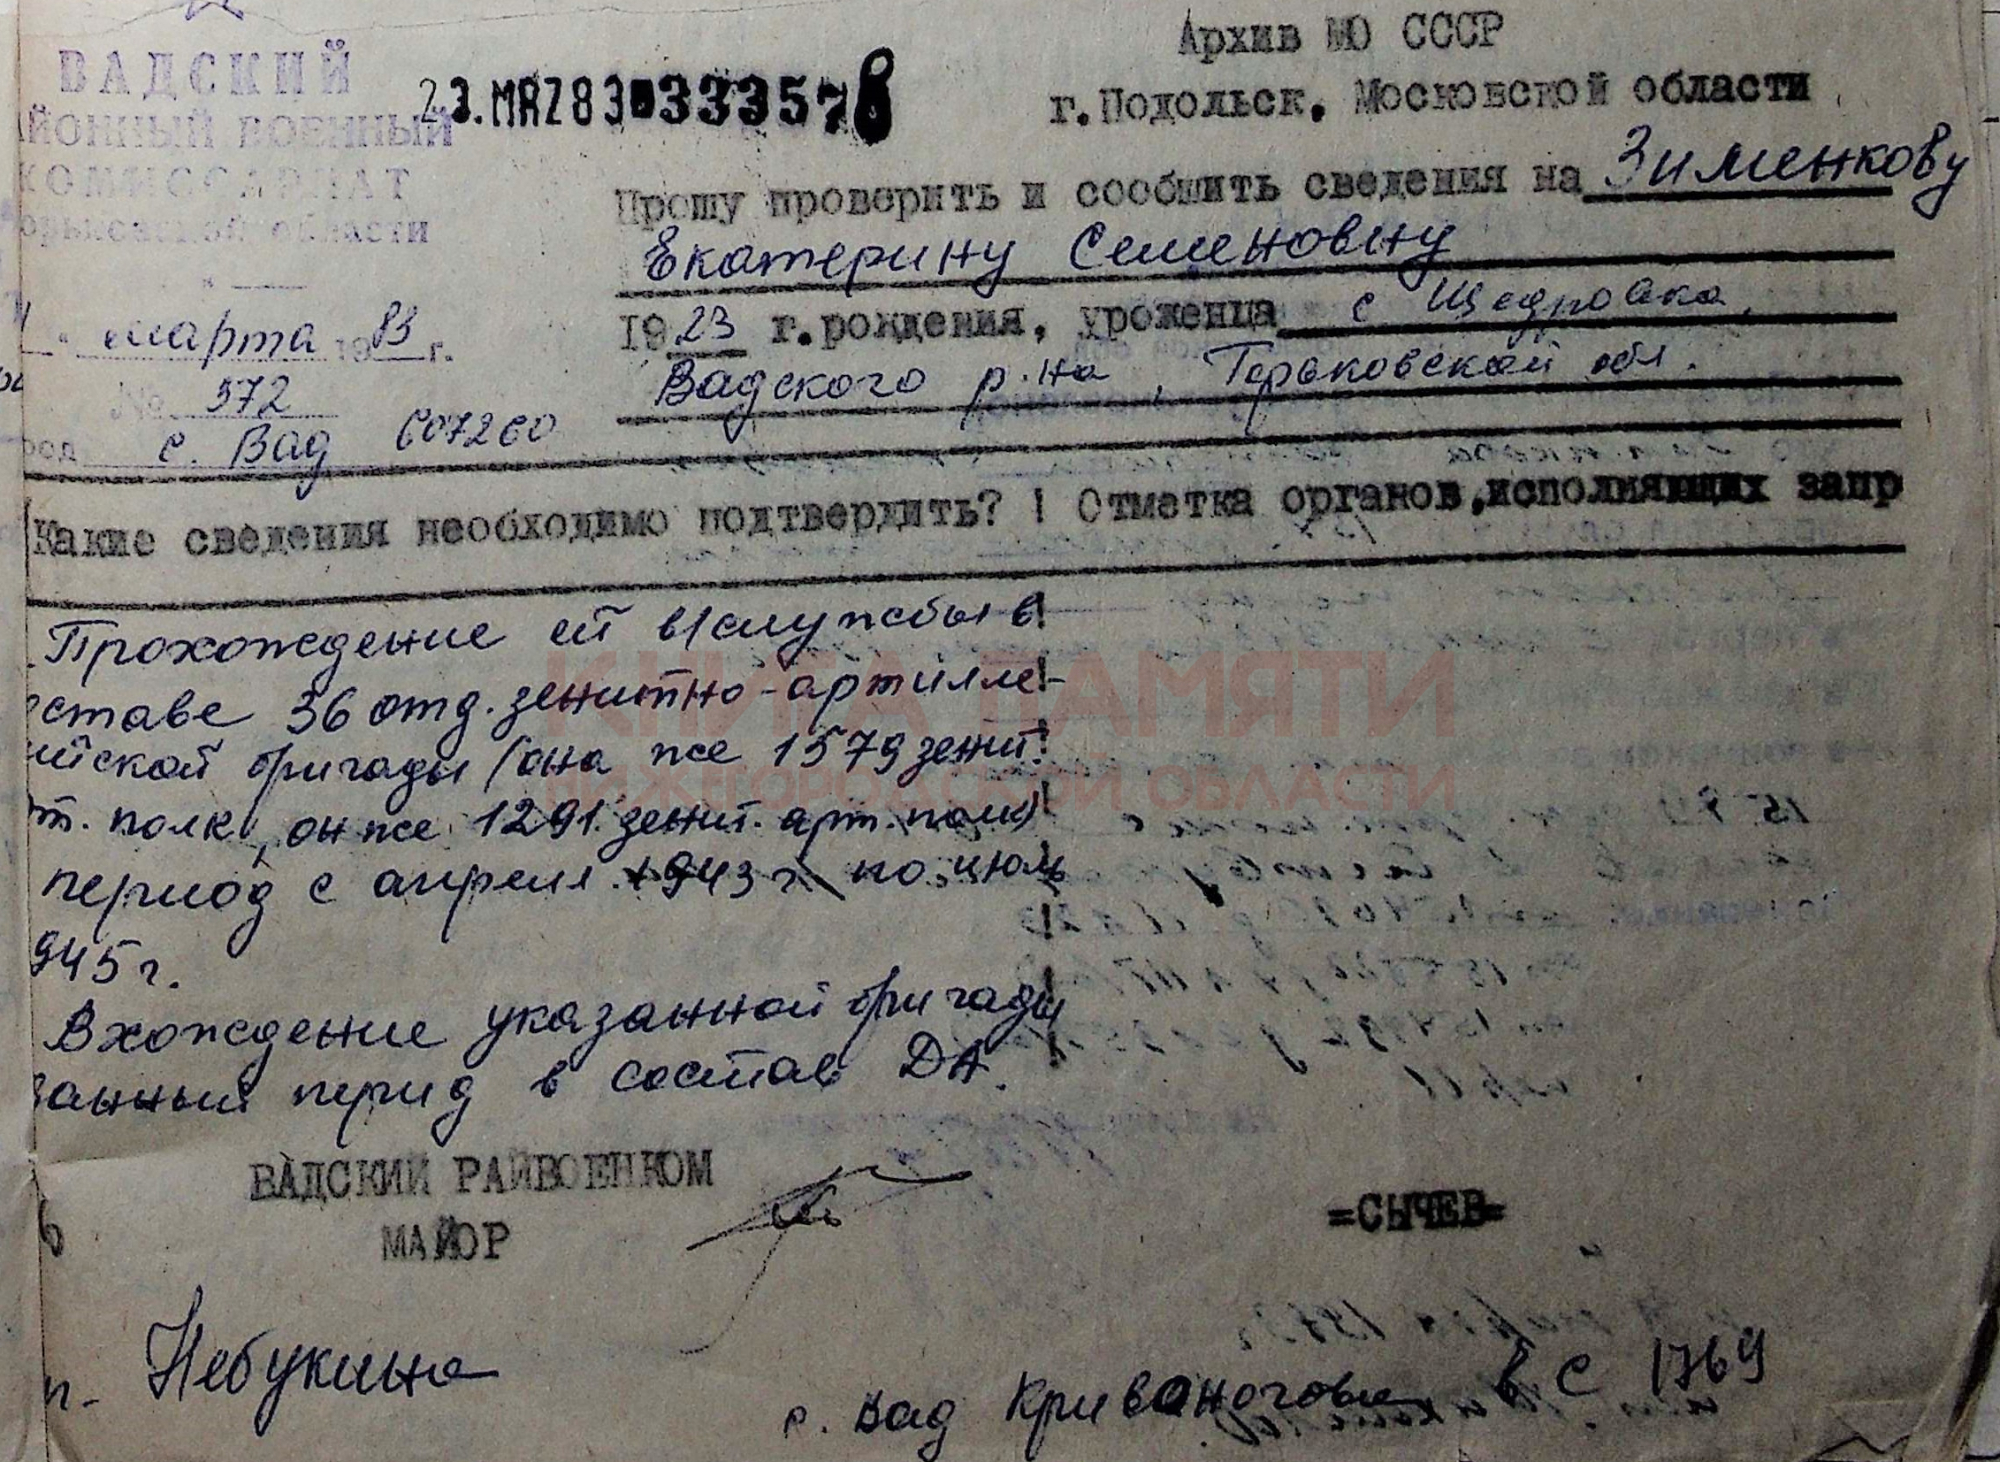 ВАДСКИЙ
ЙОННЫЙ ВОЕННЫЙ
КОМИССАРИАТ
орьковской области
марта 1983 г.
№ 572
род с. Вад 607260
23.MRZ83 333578
Архив МО СССР
г.Подольск, Московской области
Прошу проверить и сообщить сведения на Зименкову
Екатерину Семеновну
1923 г.рождения, уроженца с Щедровка,
Вадского р-на, Горьковской обл.
Какие сведения необходимо подтвердить? ! Отметка органов,исполняющих запр
Прохождение ей в/службы в!
ставе 36 отд. зенитно-артилле-
ийской бригады (она же 1579 зенит!
т. полк, он же 1291 зенит. арт. полк)!
период с апреля 1943 г по июль
945 г.
Вхождение указанной бригады
занный период в состав ДА.
ВАДСКИЙ РАЙВОЕНКОМ
МАЙОР =СЫЧЕВ=
п. Небукина
с. Вад Кривоногова в с 1769
КНИГА ПАМЯТИ
НИЖЕГОРОДСКОЙ ОБЛАСТИ